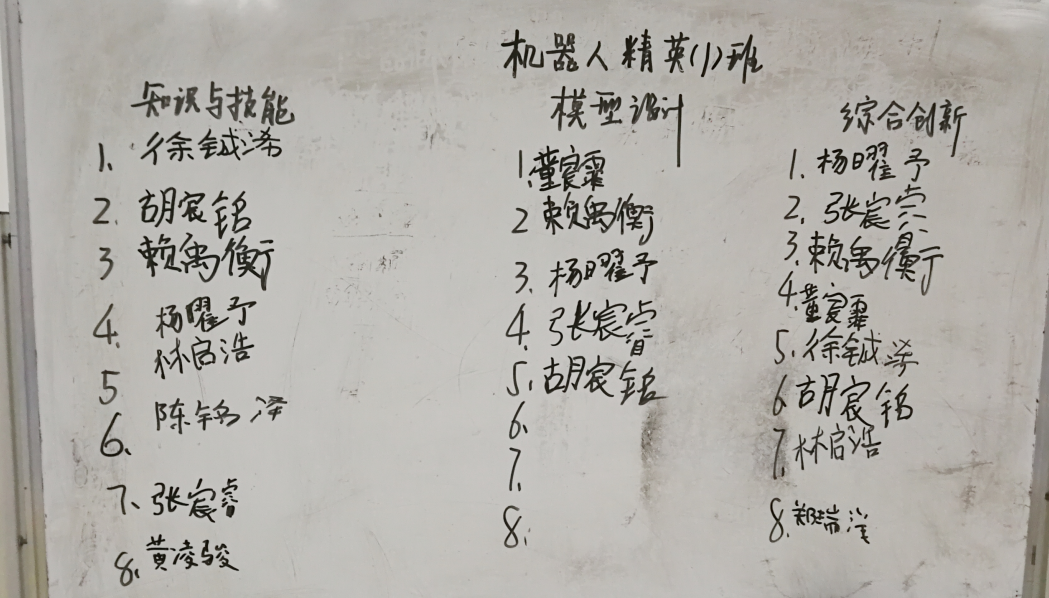 机器人精英(1)班
知识与技能
1. 徐铖浠
2. 胡宸铭
3 赖禹衡
4. 杨曜予
5 林启浩
6. 陈铭泽
7、张宸睿
8. 黄凌骏
模型设计
1. 董宸霏
2 赖禹衡
3. 杨曜予
4. 张宸睿
5. 胡宸铭
6.
7.
8.
综合创新
1. 杨曜予
2. 张宸
3. 赖禹衡
4. 董宸霏
5. 徐铖浠
6 胡宸铭
7. 林启浩
8. 郑瑞